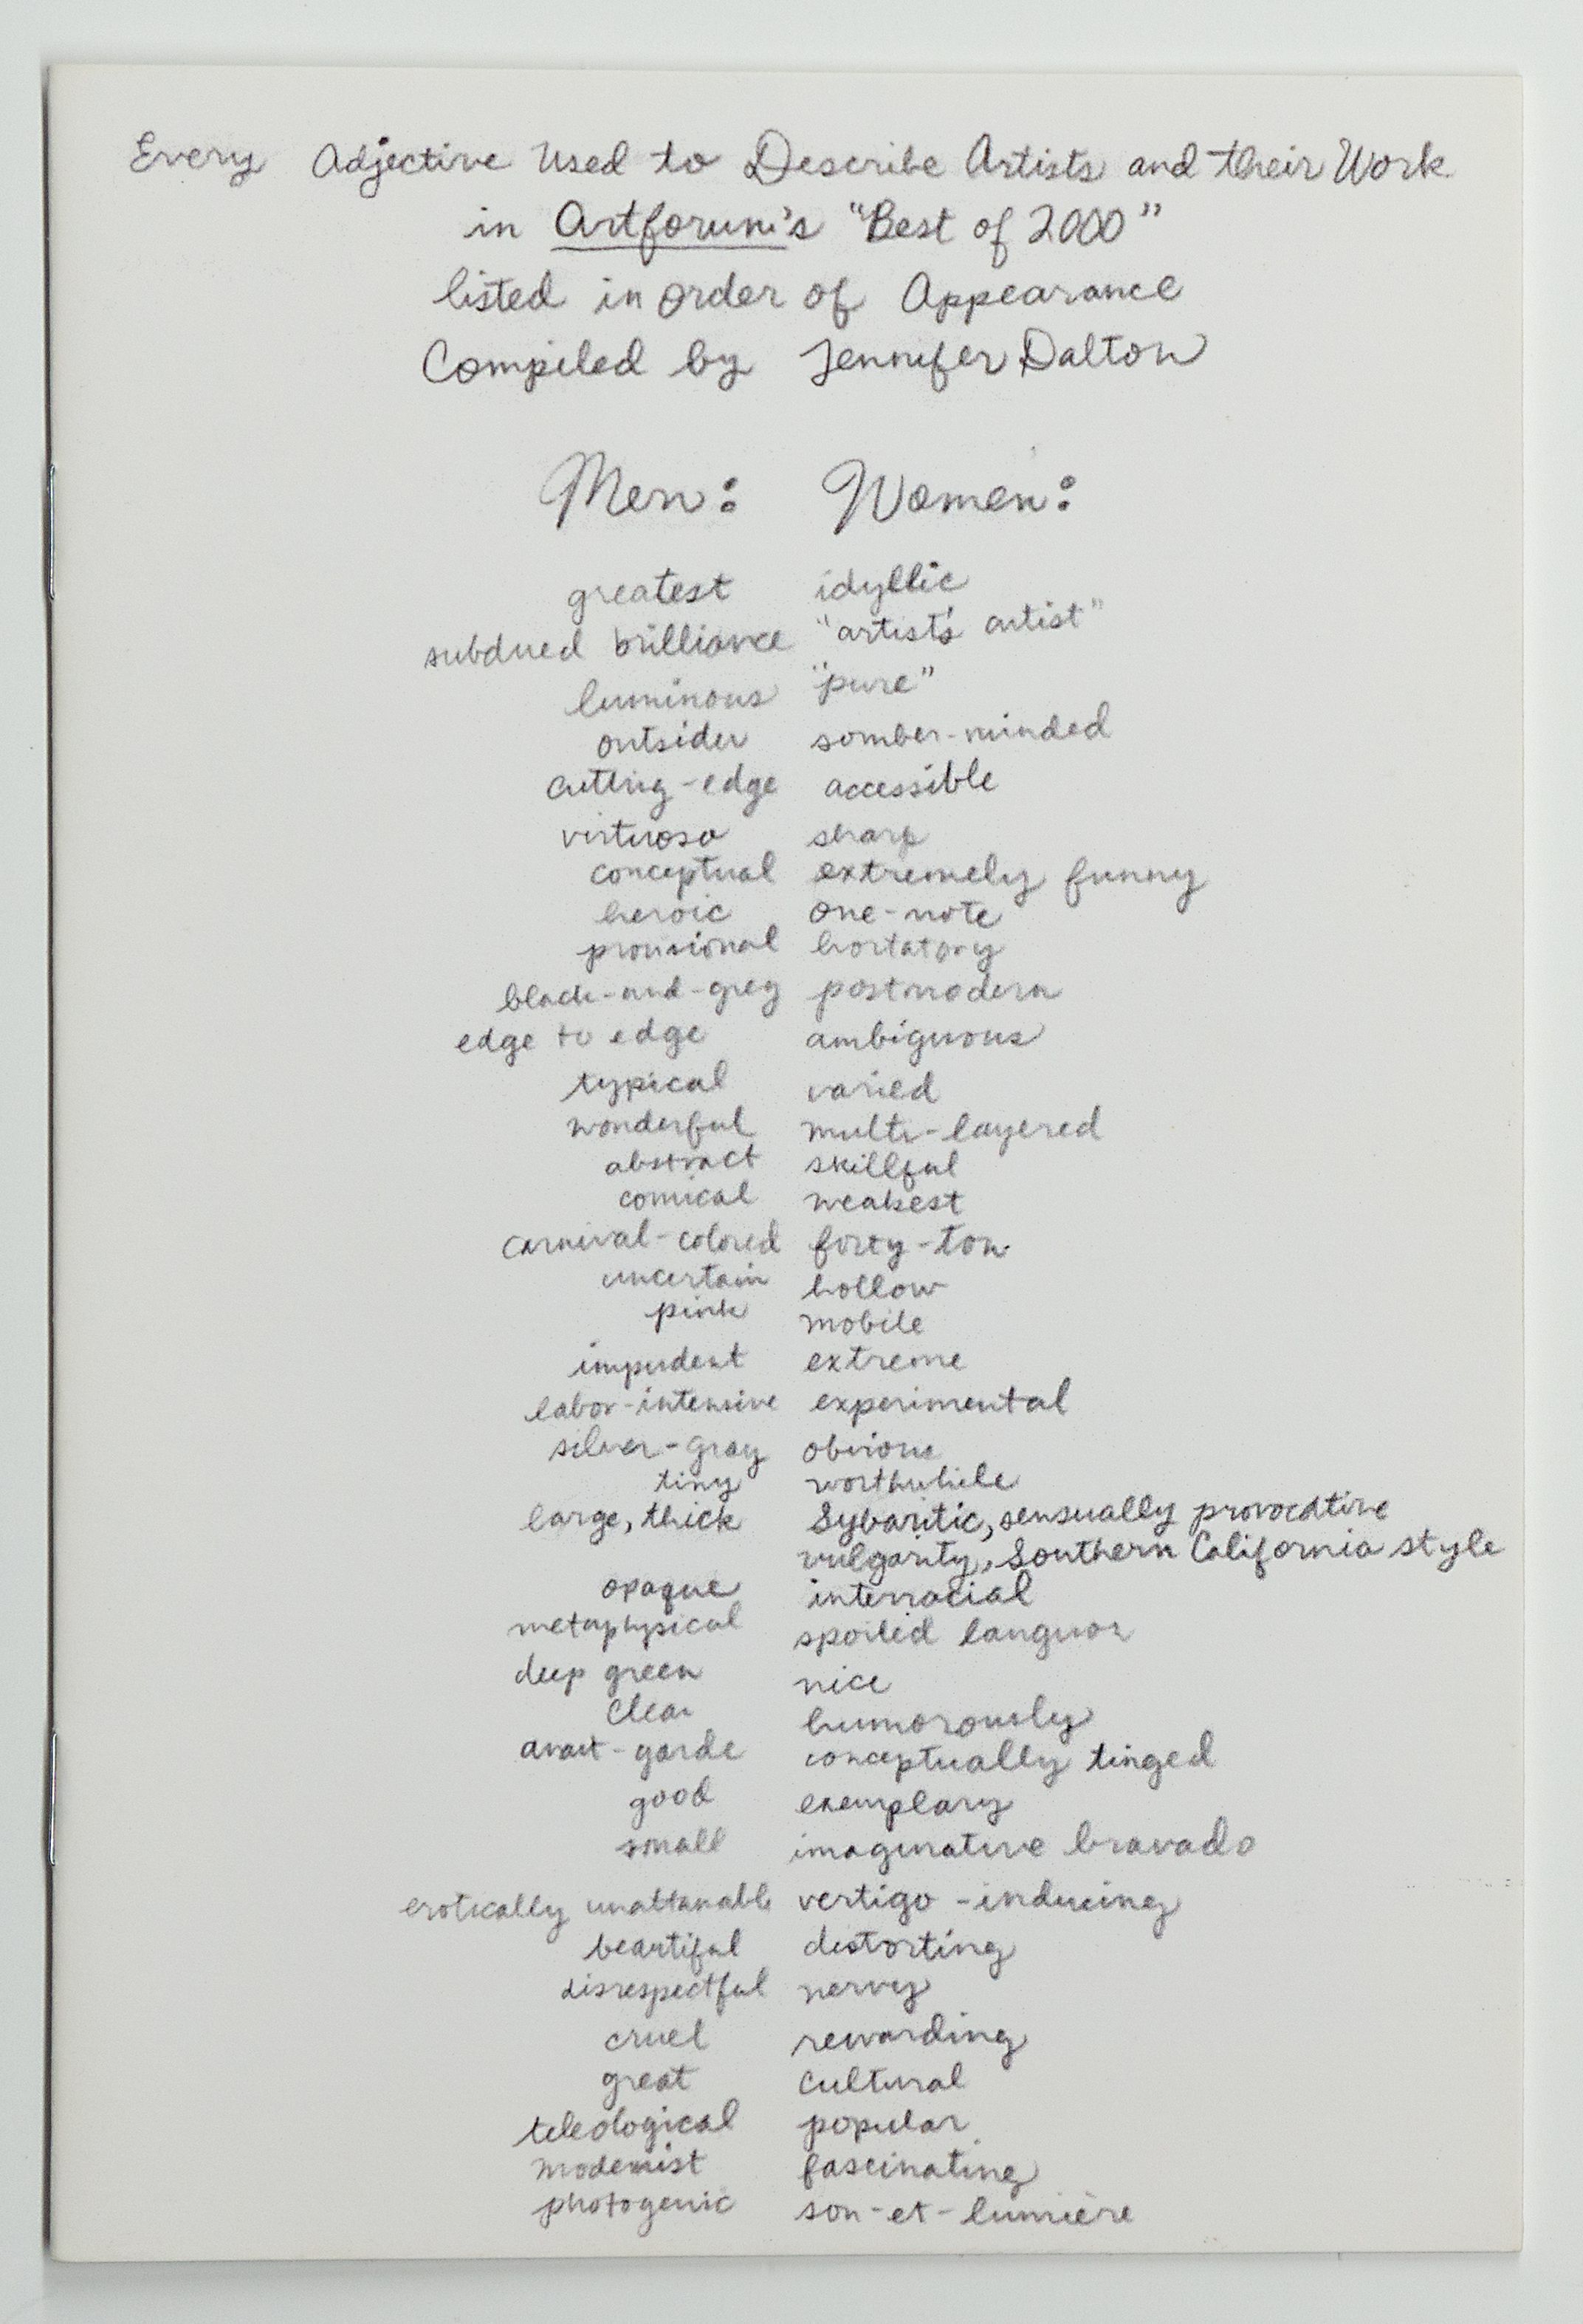 Every Adjective Used to Describe Artists and their Work
in Artforum's "Best of 2000"
listed in order of Appearance
Compiled by Jennifer Dalton
Men: Women:
greatest idyllic
subdued brilliance "artist's artist"
luminous "pure"
outsider somber-minded
cutting-edge accessible
virtuoso sharp
conceptual extremely funny
heroic one-note
provisional hortatory
black-and-grey postmodern
edge to edge ambiguous
typical varied
wonderful multi-layered
abstract skillful
comical weakest
carnival-colored forty-ton
uncertain hollow
pink mobile
impudent extreme
labor-intensive experimental
silver-gray obvious
tiny worthwhile
large, thick Sybaritic, sensually provocative
vulgarity, Southern California style
opaque interracial
metaphysical spoiled languor
deep green nice
clear humorously
avant-garde conceptually tinged
good exemplary
small imaginative bravado
erotically unattanable vertigo-inducing
beautiful distorting
disrespectful nervy
cruel rewarding
great cultural
teleological popular
modernist fascinating
photogenic son-et-lumière